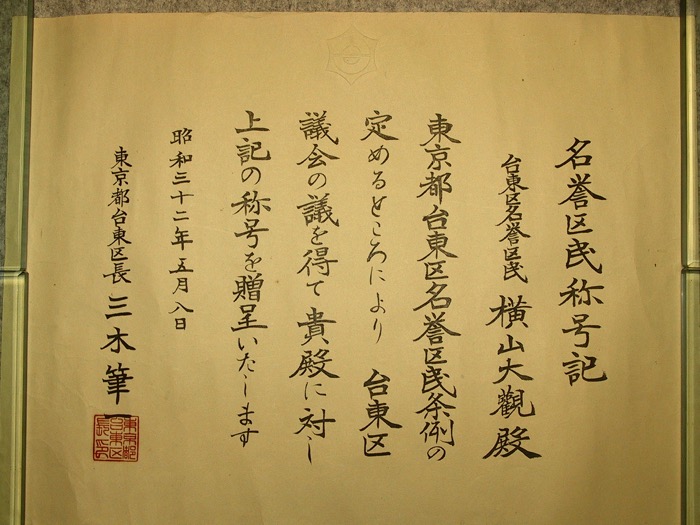 名誉区民称号記
台東区名誉区民 横山大觀殿
東京都台東区名誉区民条例の
定めるところにより 台東区
議会の議を得て貴殿に対し
上記の称号を贈呈いたします
昭和三十二年五月八日
東京都台東区長 三木筆一
東京都
台東区
長印